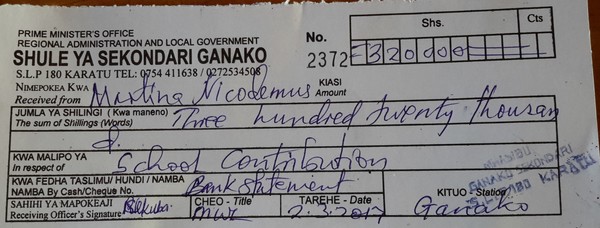 PRIME MINISTER'S OFFICE
REGIONAL ADMINISTRATION AND LOCAL GOVERNMENT
SHULE YA SEKONDARI GANAKO
S.L.P 180 KARATU TEL: 0754 411638 / 0272534508
No. 2372
Shs. Cts
=320,000=
NIMEPOKEA KWA
Received from Martina Nicodemus
KIASI
Amount
JUMLA YA SHILINGI (Kwa maneno)
The sum of Shillings (Words) Three hundred twenty thousan
d.
KWA MALIPO YA
In respect of School Contribution
KWA FEDHA TASLIMU/ HUNDI / NAMBA
NAMBA By Cash/Cheque No. Bank statement
SAHIHI YA MAPOKEAJI
Receiving Officer's Signature
CHEO - Title MWL
TAREHE - Date 2.3.2017
KITUO - Station Ganako
GANAKO SEKONDARI
KARATU